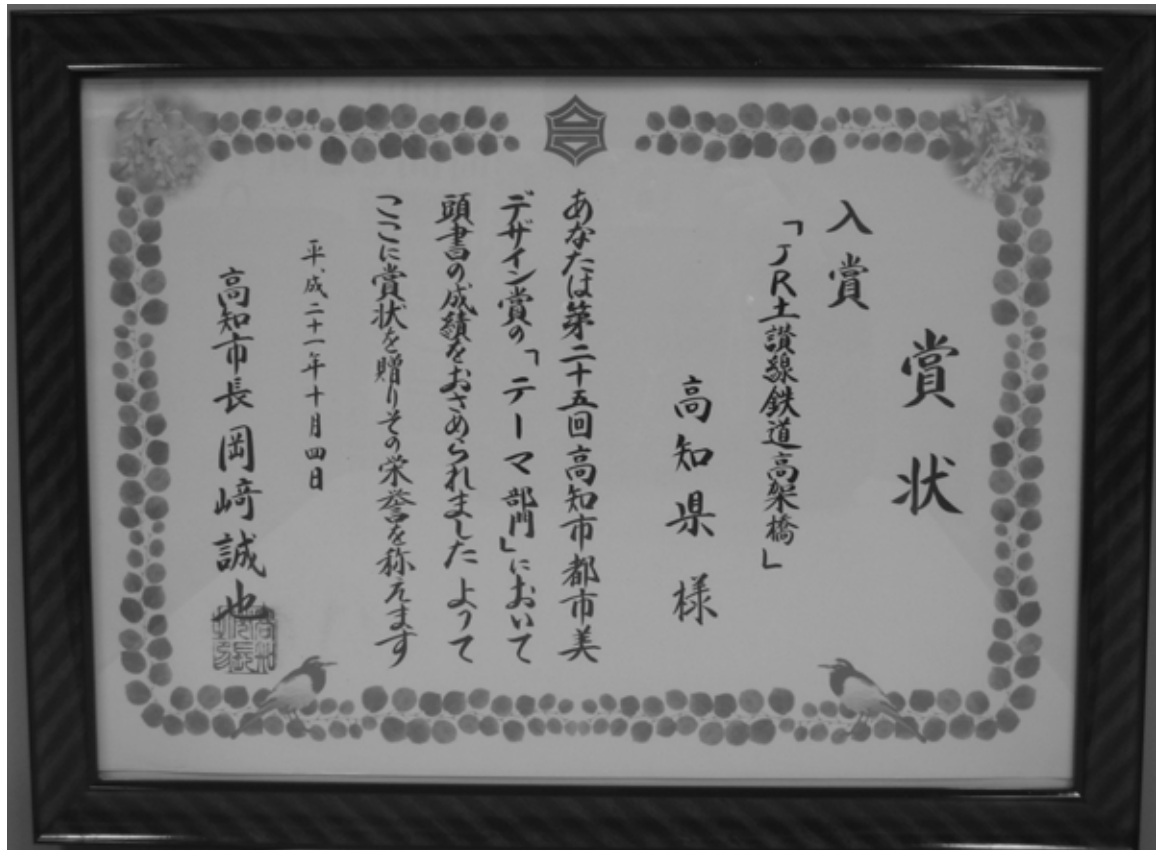 賞状
入賞
「JR土讃線鉄道高架橋」
高知県 様
あなたは第二十五回高知市都市美
デザイン賞の「テーマ部門」において
頭書の成績をおさめられました よって
ここに賞状を贈りその栄誉を称えます
平成二十一年十月四日
高知市長 岡﨑誠也